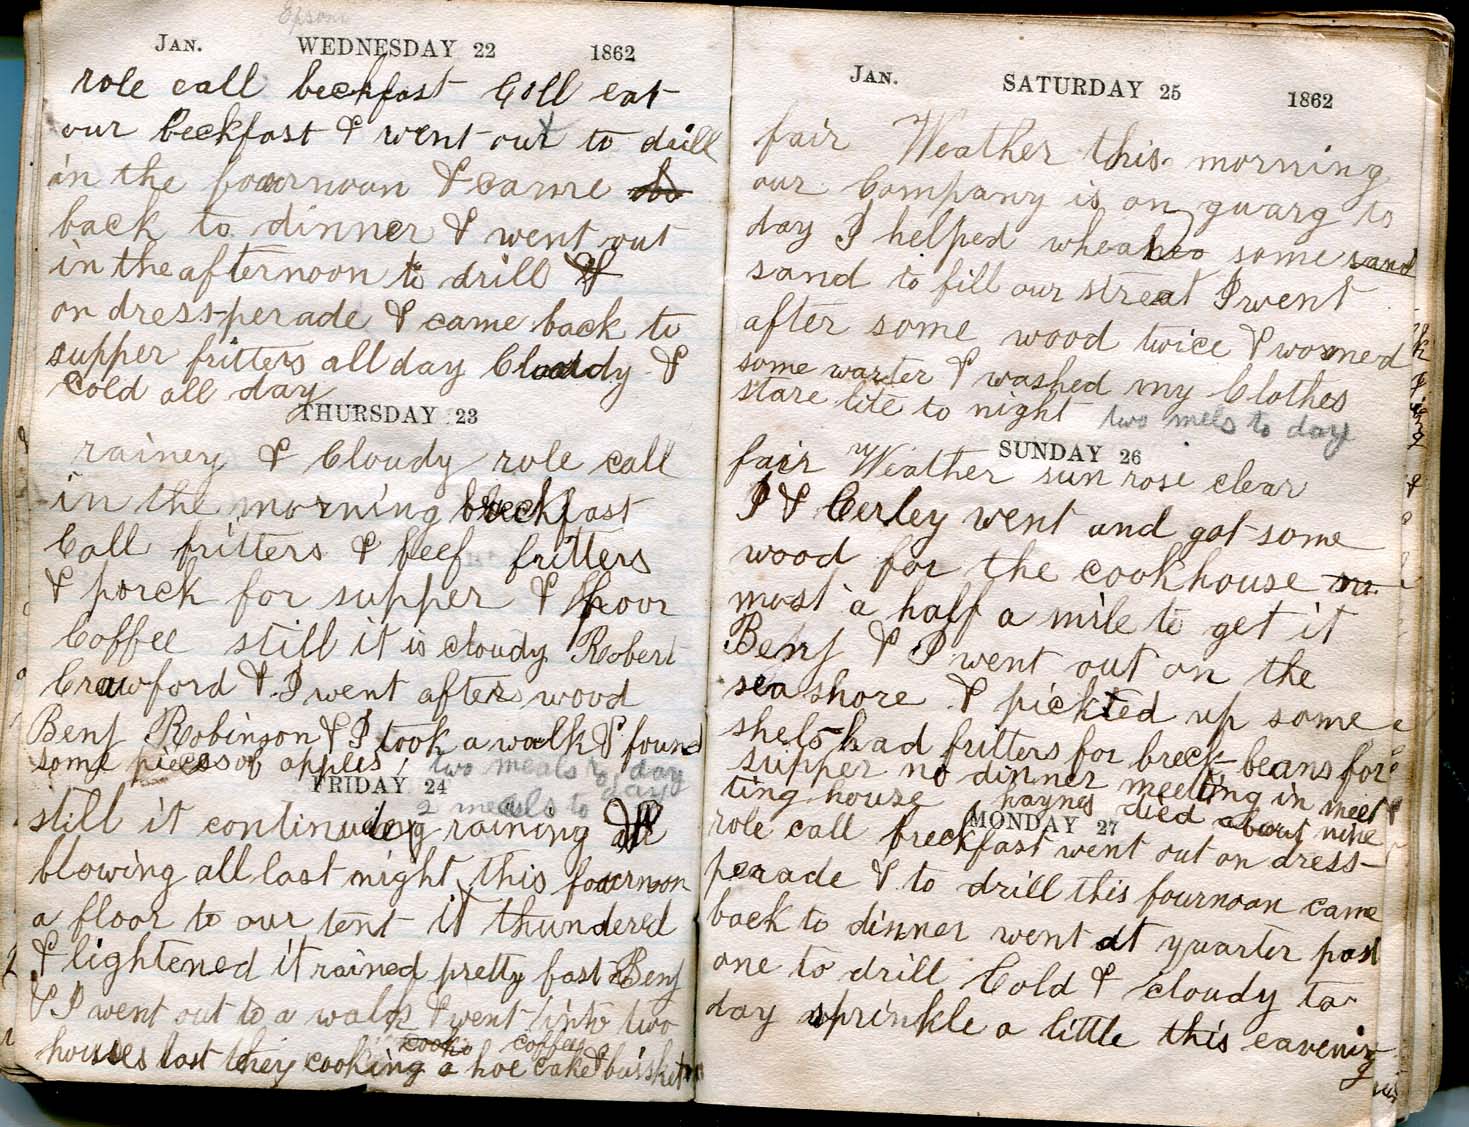 JAN. WEDNESDAY 22 1862
role call beckfast Coll eat
our beckfast & went out to drill
in the foournoon & came
back to dinner & went out
in the afternoon to drill &
on dress-perade & came back to
supper fritters all day Cloudy &
cold all day
THURSDAY 23
rainey & Cloudy role call
in the morning breckfast
Coll fritters & beef fritters
& porck for supper &
Coffee still it is cloudy Robert
Crawford & I went after wood
Benj Robinson & I took a walk & found
some pieces of apples two meals to day
FRIDAY 24
2 meals to day
still it continueing raining
blowing all last night this foournoon
a floor to our tent it thundered
& lightened it rained pretty fast Benj
& I went out to a walk & went into two
cooks coffee
houses last they cooking a hoe cake & buisket
JAN. SATURDAY 25 1862
fair Weather this morning
our Company is on guarg to
day I helped some sand
sand to fill our streat I went
after some wood twice & wormed
some warter & washed my Clothes
stare lite to night two mels to day
SUNDAY 26
fair Weather sun rose clear
I & Cerley went and got some
wood for the cookhouse
most a half a mile to get it
Benj & I went out on the
sea shore & pickted up some
shels had fritters for breck- beans for
supper no dinner meeting in meet
ting house haynes died about nine
MONDAY 27
role call breckfast went out on dress-
perade & to drill this fournoon came
back to dinner went at quarter past
one to drill Cold & cloudy to
day sprinkle a little this eavening